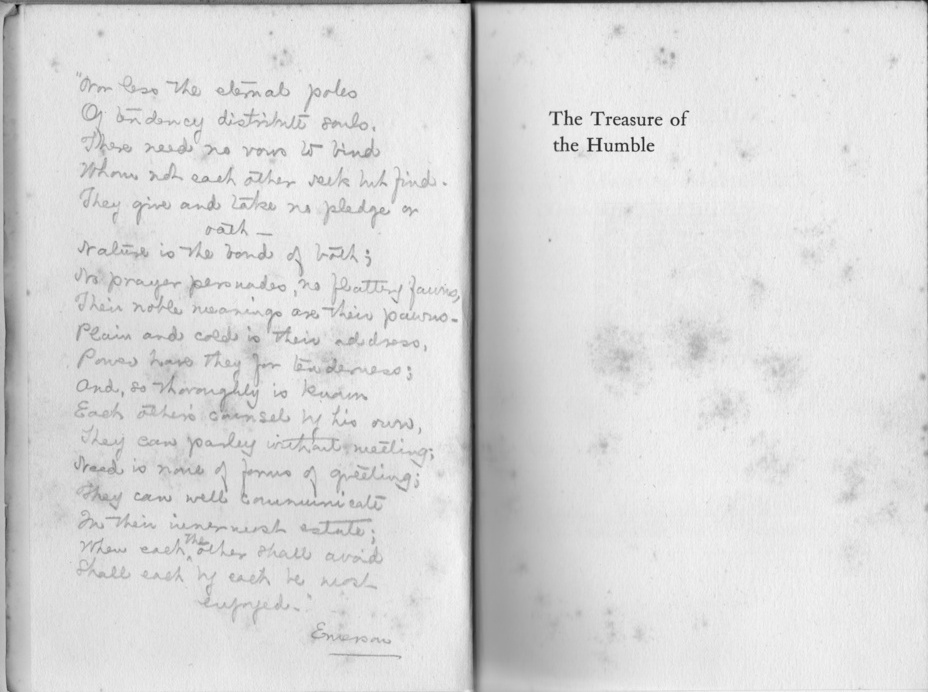 "Nor less the eternal poles
Of tendency distribute souls.
There need no vows to bind
Whom not each other seek but find.
They give and take no pledge or
oath —
Nature is the bond of both;
No prayer persuades, no flattery fawns,
Their noble meanings are their pawns.
Plain and cold is their address,
Power have they for tenderness;
And, so thoroughly is known
Each other's counsel by his own,
They can parley without meeting;
Need is none of forms of greeting;
They can well communicate
In their innermost estate;
When each the other shall avoid
Shall each by each be most
enjoyed."
Emerson
The Treasure of
the Humble